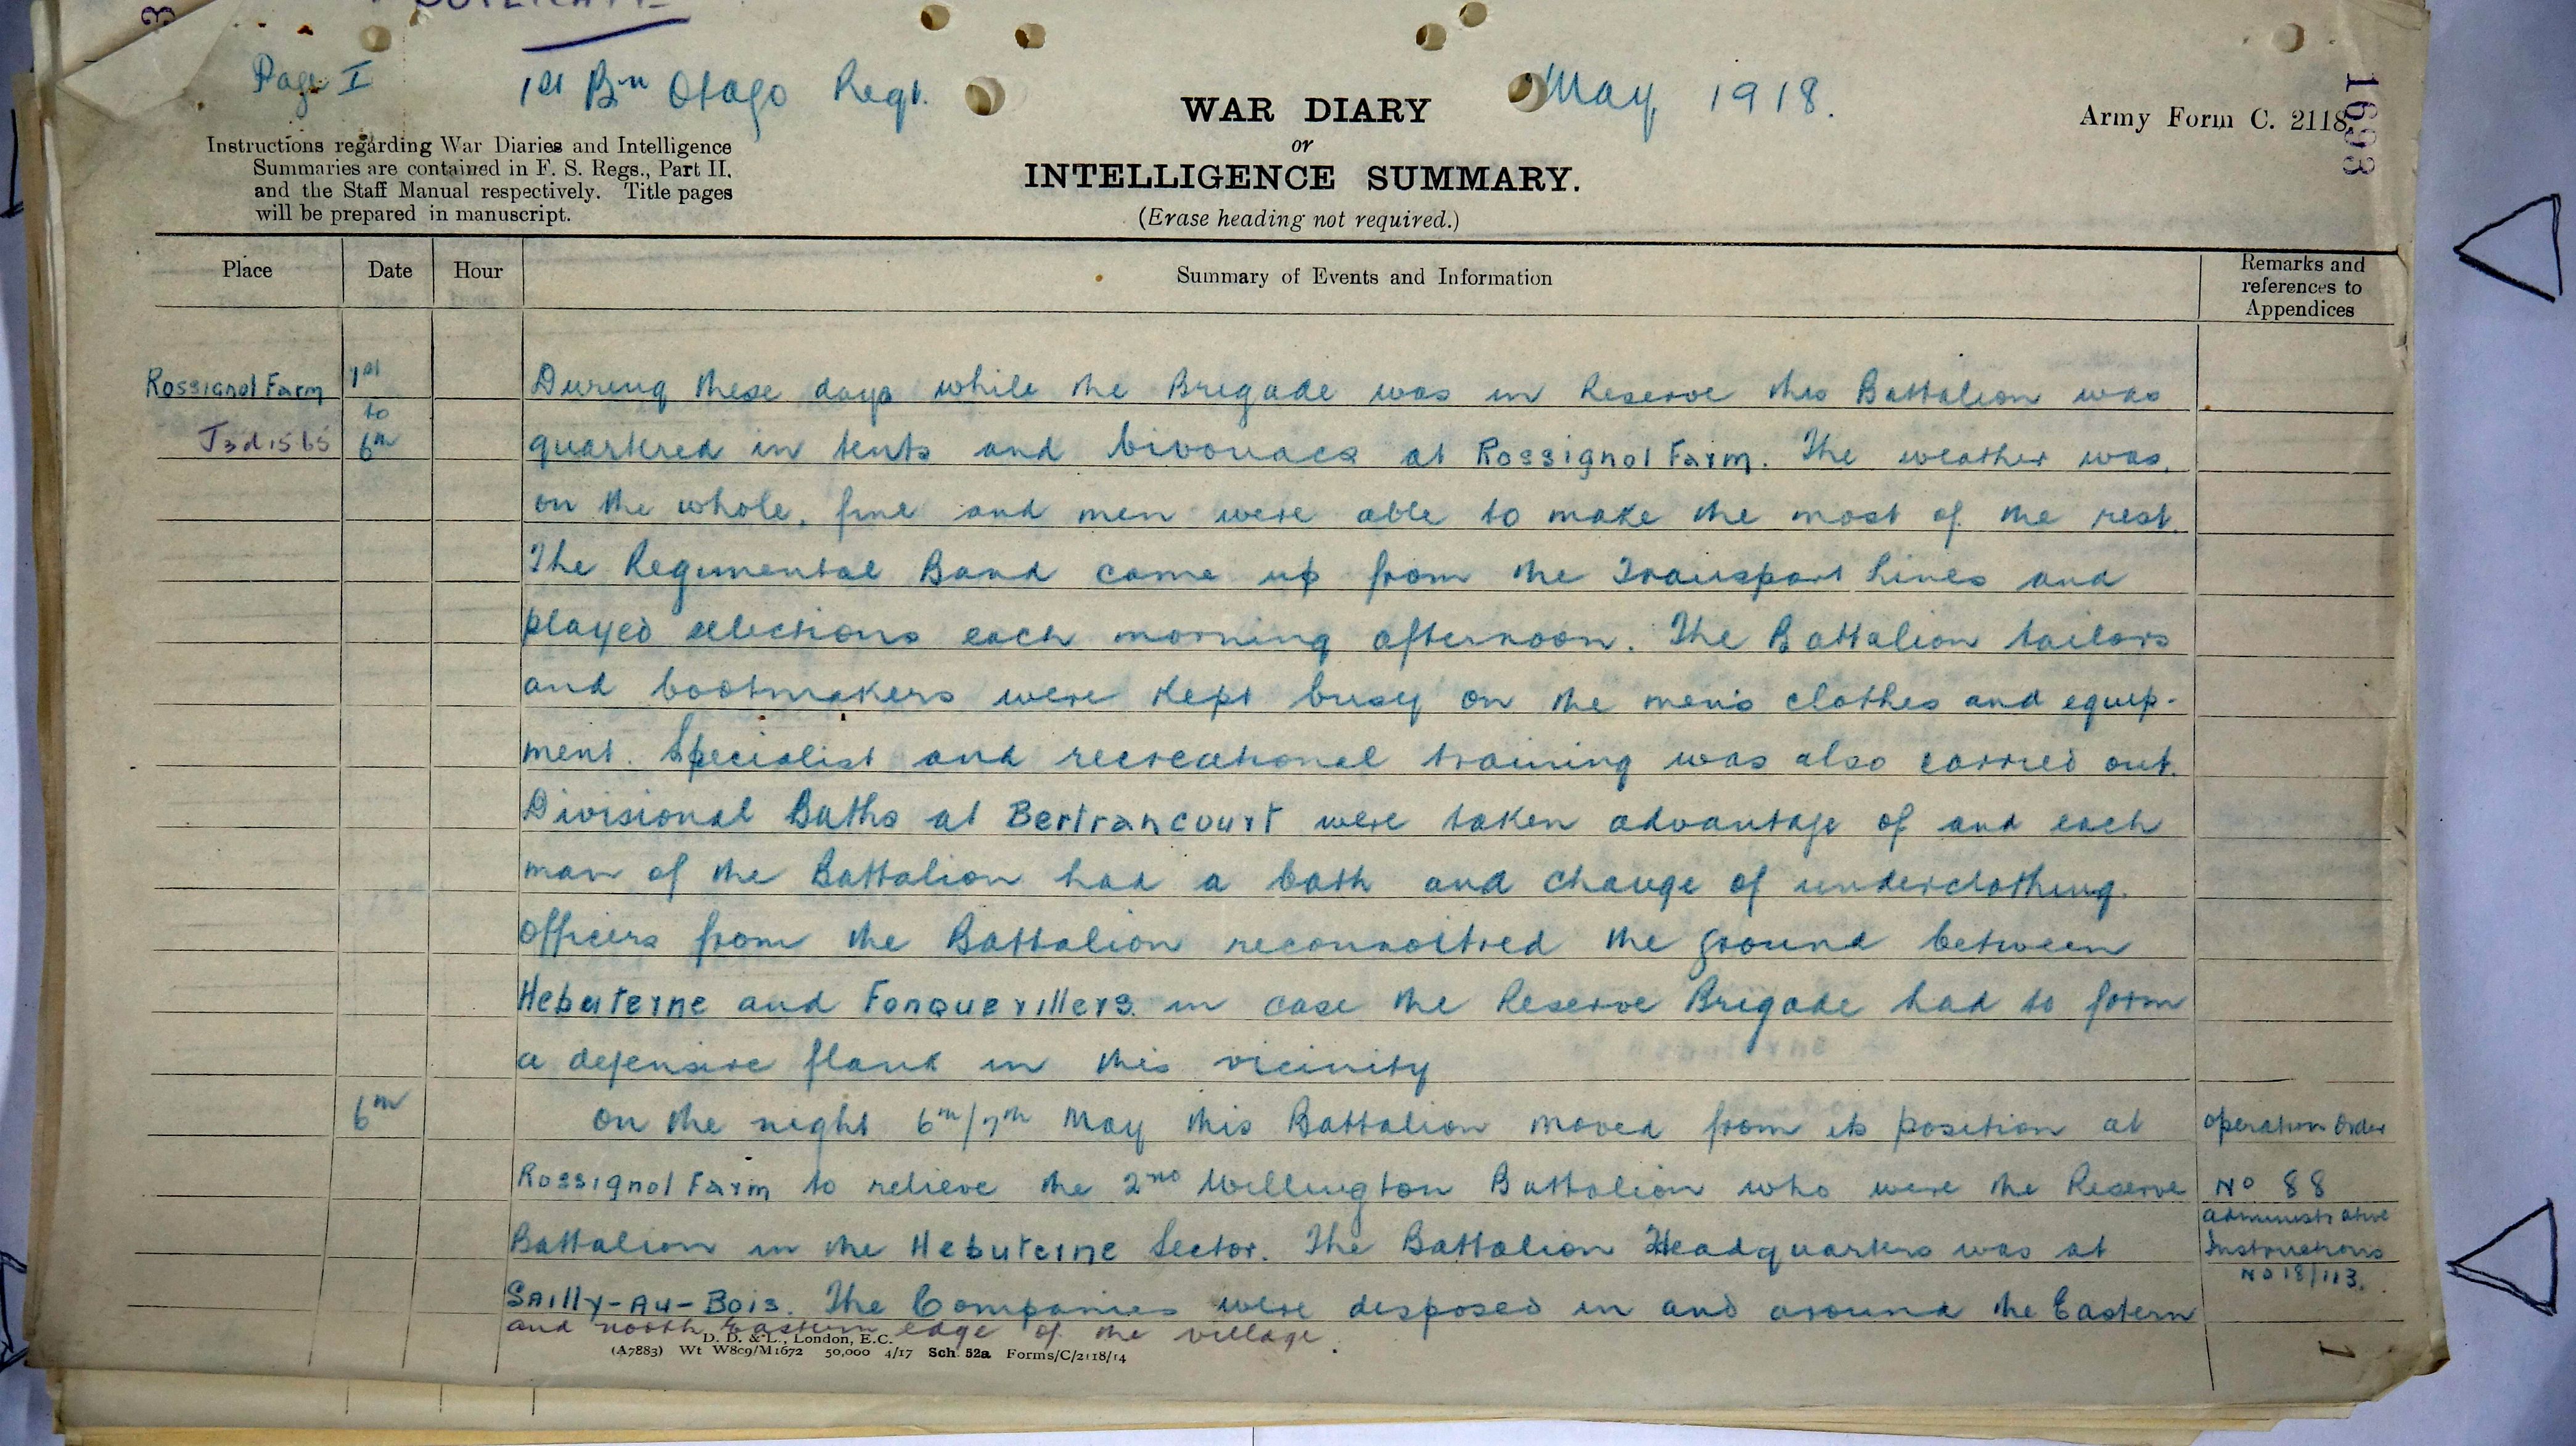 Page I
1st Bn Otago Regt.
May 1918.
WAR DIARY
or
INTELLIGENCE SUMMARY.
(Erase heading not required.)
Army Form C. 2118
1693
Instructions regarding War Diaries and Intelligence
Summaries are contained in F. S. Regs., Part II.
and the Staff Manual respectively. Title pages
will be prepared in manuscript.
Place Date Hour Summary of Events and Information Remarks and references to Appendices
Rossignol Farm 1st During these days while the Brigade was in Reserve this Battalion was
to
J3d1565 6th quartered in tents and bivouacs at Rossignol Farm. The weather was,
on the whole, fine and men were able to make the most of the rest.
The Regimental Band came up from the Transport Lines and
played selections each morning afternoon. The Battalion tailors
and bootmakers were kept busy on the men's clothes and equip-
ment. Specialist and recreational training was also carried out.
Divisional Baths at Bertrancourt were taken advantage of and each
man of the Battalion had a bath and change of underclothing.
Officers from the Battalion reconnoitred the ground between
Hebuterne and Fonquevillers. in case the Reserve Brigade had to form
a defensive flank in this vicinity
6th On the night 6th/7th May this Battalion moved from its position at Operation Order
Rossignol Farm to relieve the 2nd Wellington Battalion who were the Reserve No 88
Administrative
Battalion in the Hebuterne Sector. The Battalion Headquarters was at Instructions
No 18/113.
Sailly-Au-Bois. The Companies were disposed in and around the Eastern
and north Eastern edge of the village.
D. D. & L., London, E.C.
(A7883) Wt W809/M1672 50,000 4/17 Sch. 52a Forms/C/2118/14
1